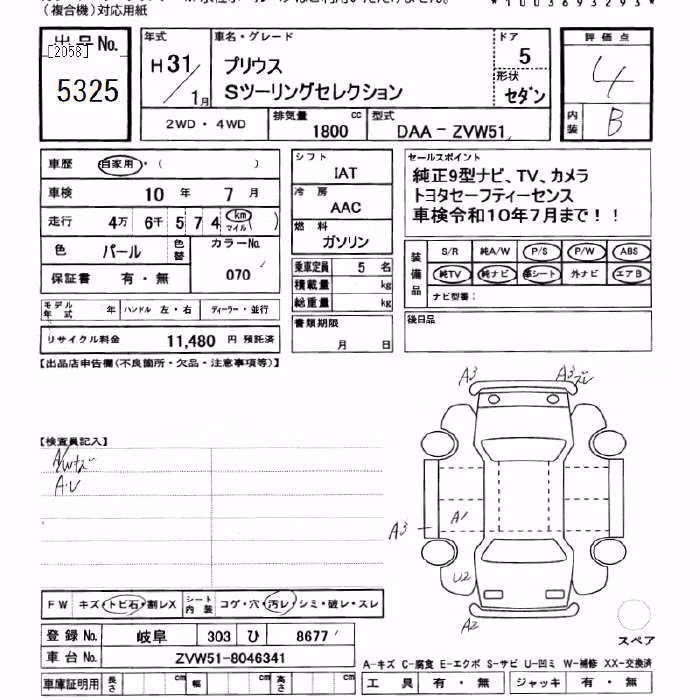 （複合機）対応用紙
*1003693293*
出品No.
[2058]
5325
年式 H31／1月
車名・グレード
プリウス
Sツーリングセレクション
ドア 5
形状 セダン
評価点
4
内装 B
2WD・4WD
排気量 1800 cc
型式 DAA－ZVW51
車歴 自家用・（ ）
車検 10年 7月
走行 4万 6千 5 7 4 km マイル（ ）
色 パール
色替
カラーNo. 070
保証書 有・無
モデル年式 年
ハンドル 左・右
ディーラー・並行
リサイクル料金 11,480 円 預託済
シフト IAT
冷房 AAC
燃料 ガソリン
乗車定員 5 名
積載量 kg
総重量 kg
書類期限
月 日
セールスポイント
純正9型ナビ、TV、カメラ
トヨタセーフティーセンス
車検令和10年7月まで！！
装備品
S/R 純A/W P/S P/W ABS
純TV 純ナビ 革シート 外ナビ エアB
ナビ型番：
後日品
【出品店申告欄(不良箇所・欠品・注意事項等)】
【検査員記入】
A・U
A3
A3
A3
A1
U2
A2
スペア
FW キズ・トビ石・割レX
シート内装 コゲ・穴・汚レ・シミ・破レ・スレ
登録No. 岐阜 303 ひ 8677
車台No. ZVW51-8046341
車庫証明用 長さ cm 幅 cm 高さ cm
A-キズ C-腐食 E-エクボ S-サビ U-凹ミ W-補修 XX-交換済
工具 有・無 ジャッキ 有・無